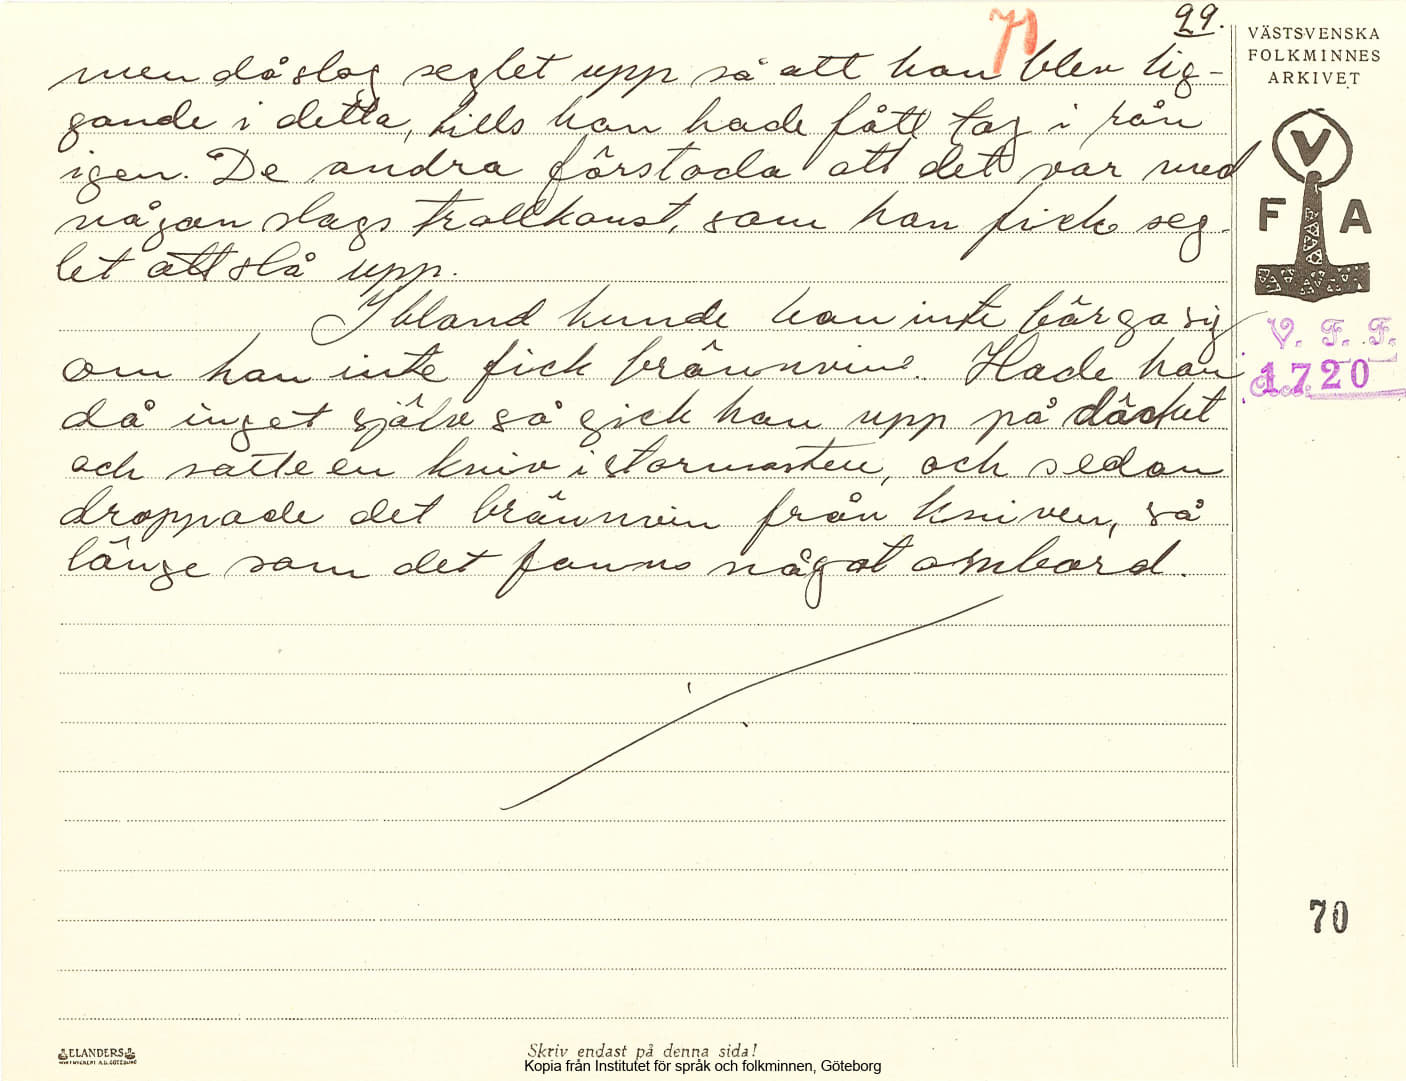 71
29.
VÄSTSVENSKA
FOLKMINNES
ARKIVET
V
F A
V. F. F.
1720
men då slog seglet upp så att han blev lig-
gande i detta, tills han hade fått tag i rån
igen. De andra förstoda att det var med
någon slags trollkonst, som han fick seg-
let att slå upp.
Ibland kunde han inte bärga sig
om han inte fick brännvin. Hade han
då inget själv så gick han upp på däcket
och satte en kniv i stormasten, och sedan
droppade det brännvin från kniven, så
länge som det fanns något ombord.
70
ELANDERS
Skriv endast på denna sida!
Kopia från Institutet för språk och folkminnen, Göteborg